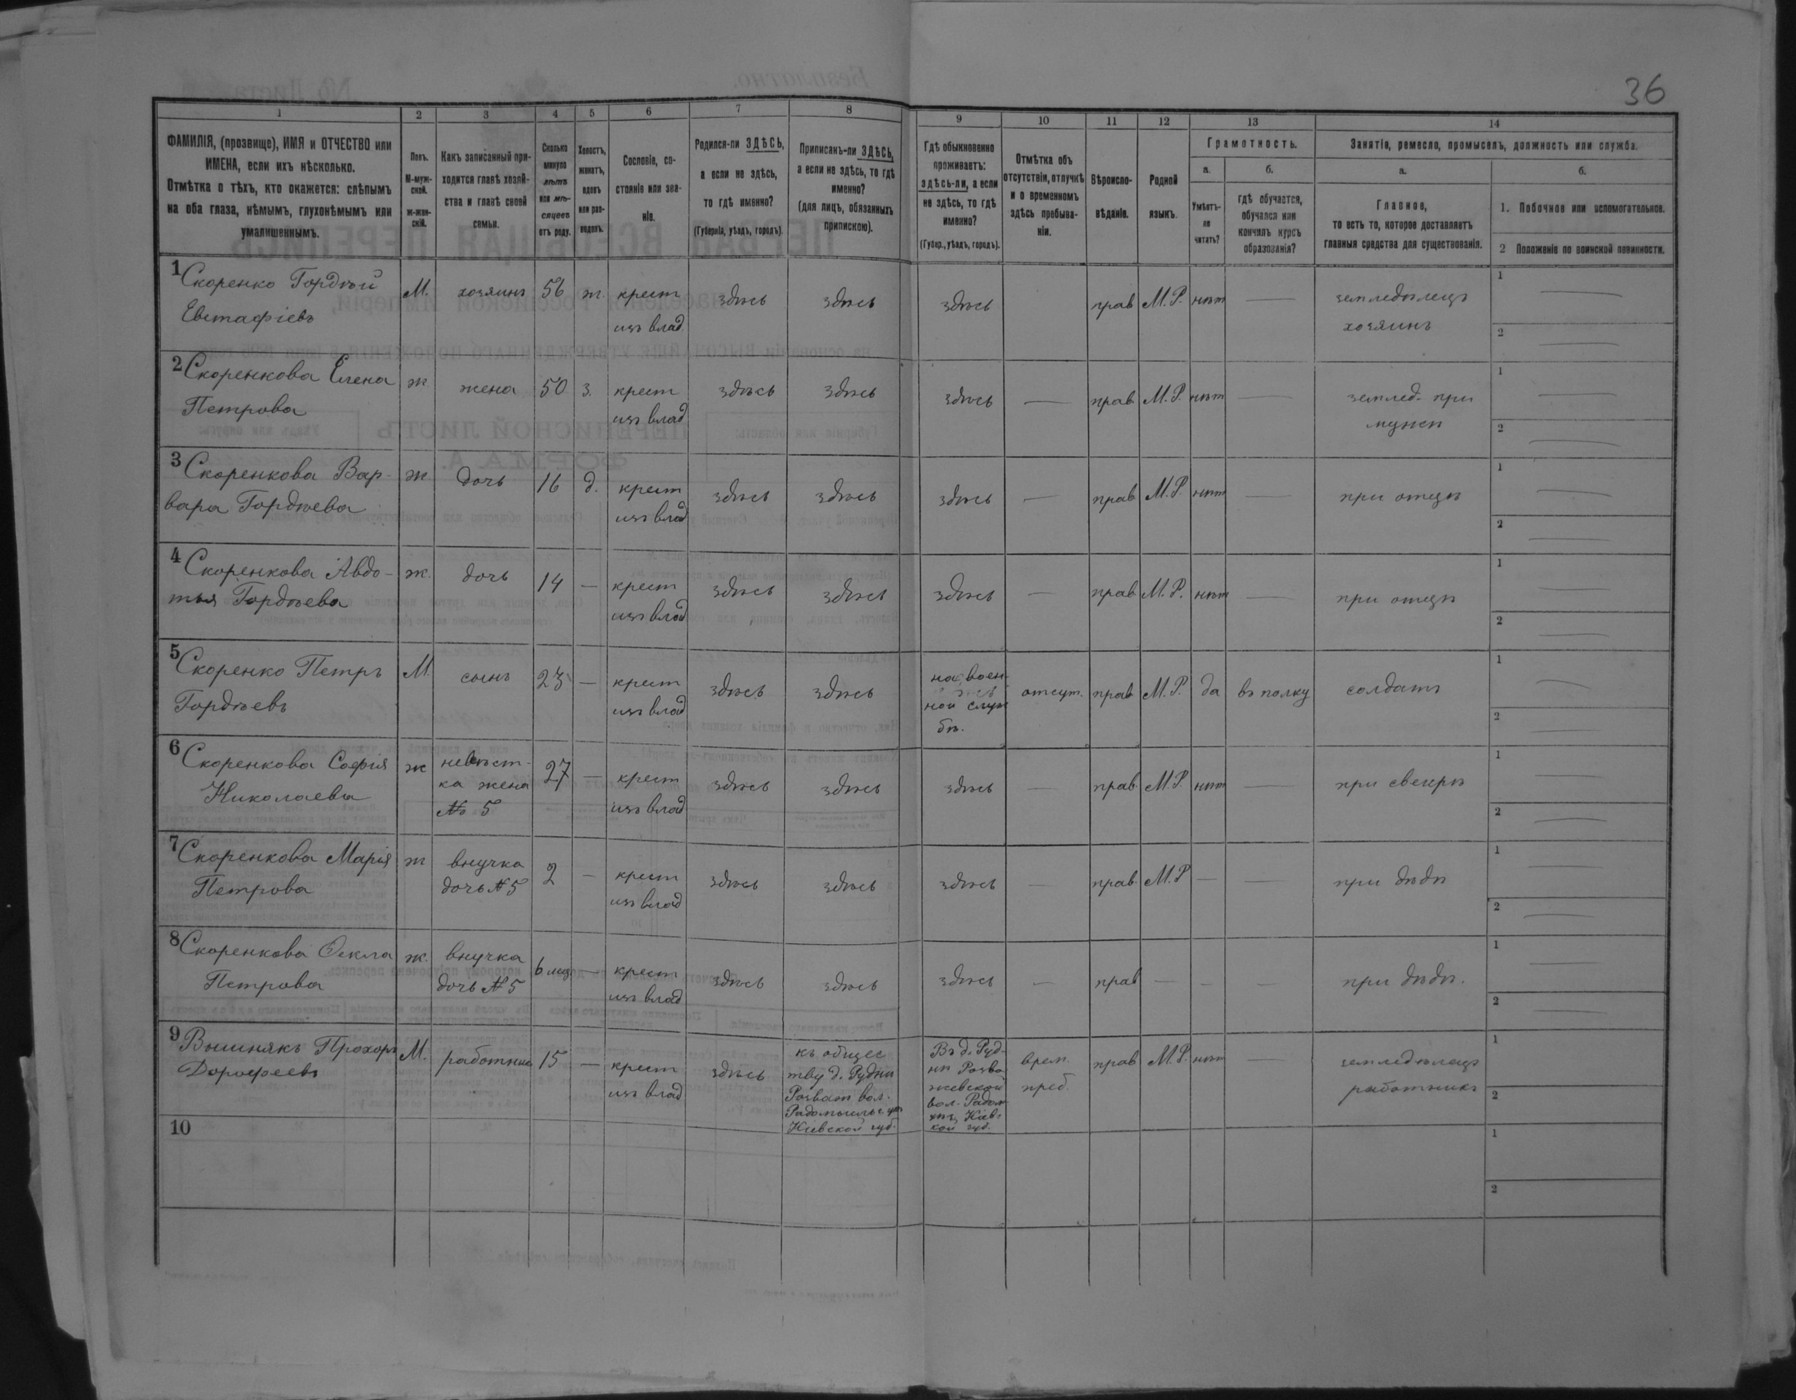 36
1
2
3
4
5
6
7
8
9
10
11
12
13
14
ФАМИЛІЯ, (прозвище), ИМЯ и ОТЧЕСТВО или
ИМЕНА, если ихъ нѣсколько.
Отмѣтка о тѣхъ, кто окажется: слѣпымъ
на оба глаза, нѣмымъ, глухонѣмымъ или
умалишеннымъ.
Полъ.
М-муж-
ской.
ж-жен-
скій.
Какъ записанный при-
ходится главѣ хозяй-
ства и главѣ своей
семьи.
Сколько
минуло
лѣтъ
или мѣ-
сяцевъ
отъ роду.
Холостъ,
женатъ,
вдовъ
или раз-
веденъ.
Сословіе, со-
стояніе или зва-
ніе.
Родился-ли ЗДѢСЬ,
а если не здѣсь,
то гдѣ именно?
(Губернія, уѣздъ, городъ).
Приписанъ-ли ЗДѢСЬ,
а если не здѣсь, то гдѣ
именно?
(для лицъ, обязанныхъ
припискою).
Гдѣ обыкновенно
проживаетъ:
здѣсь-ли, а если
не здѣсь, то гдѣ
именно?
(Губер., уѣздъ, городъ).
Отмѣтка объ
отсутствіи, отлучкѣ
и о временномъ
здѣсь пребыва-
ніи.
Вѣроиспо-
вѣданіе.
Родной
языкъ.
Грамотность.
а.
Умѣетъ-
ли
читать?
б.
гдѣ обучается,
обучался или
кончилъ курсъ
образованія?
Занятіе, ремесло, промыселъ, должность или служба.
а.
Главное,
то есть то, которое доставляетъ
главныя средства для существованія.
б.
1. Побочное или вспомогательное.
2 Положеніе по воинской повинности.
1 Скоренко Гордѣй М. хозяинъ 56 ж крест здѣсь здѣсь здѣсь прав М.Р. нѣт — земледѣлецъ 1 —
Евстафіевъ изъ влад хозяинъ 2 —
2 Скоренкова Елена ж жена 50 з. крест здѣсь здѣсь здѣсь — прав М.Р. нѣт — землед. при 1 —
Петрова изъ влад мужѣ 2 —
3 Скоренкова Вар- ж дочь 16 д. крест здѣсь здѣсь здѣсь — прав М.Р. нѣт — при отцѣ 1 —
вара Гордѣева изъ влад 2 —
4 Скоренкова Авдо- ж. дочь 14 — крест здѣсь здѣсь здѣсь — прав М.Р. нѣт — при отцѣ 1
тья Гордѣева изъ влад 2 —
5 Скоренко Петръ М. сынъ 23 — крест здѣсь здѣсь на воен отсут. прав М.Р. да въ полку солдатъ 1 —
Гордѣевъ изъ влад ной служ 2 —
бѣ.
6 Скоренкова Софія ж невѣст- 27 — крест здѣсь здѣсь здѣсь — прав М.Р. нѣт — при свекрѣ 1 —
Николаева ка жена изъ влад 2 —
№ 5
7 Скоренкова Марія ж внучка 2 — крест здѣсь здѣсь здѣсь — прав М.Р — — при дѣдѣ 1 —
Петрова дочь № 5 изъ влад 2 —
8 Скоренкова Ѳекла ж. внучка 6 мц — крест здѣсь здѣсь здѣсь — прав — — — при дѣдѣ. 1 —
Петрова дочь № 5 изъ влад 2 —
9 Вишнякъ Прохоръ М. работник 15 — крест здѣсь къ общес Въ д. Руд- врем. прав М.Р. нѣт — земледѣлецъ 1
Дорофеевъ изъ влад тву д. Рудни нѣ Розва- преб. работникъ 2
Розваж вол. жевской
Радомысльс уѣз вол. Радом
Кіевской губ. уѣз, Кіев-
ской губ.
10 1
2